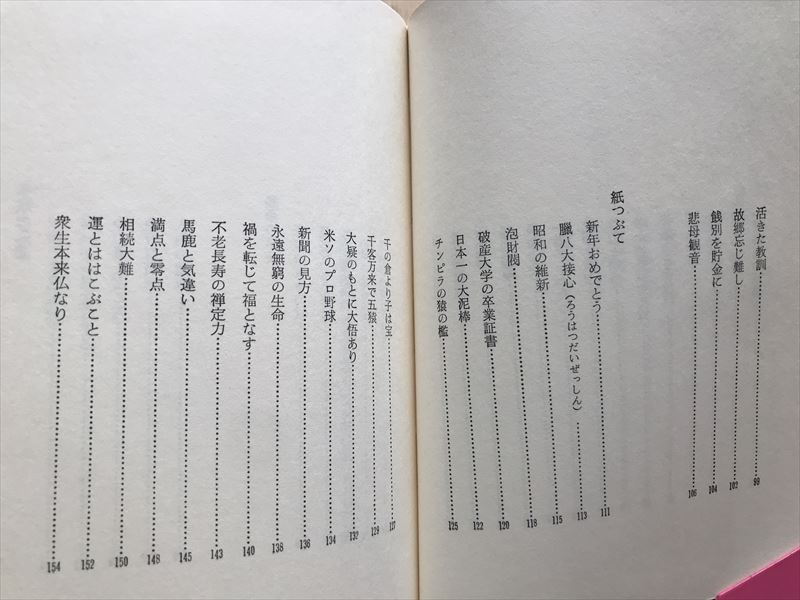 活きた教訓………99
故郷忘じ難し………102
餞別を貯金に………104
悲母観音………106
紙つぶて
新年おめでとう………111
臘八大接心（ろうはつだいぜっしん）………113
昭和の維新………115
泡財閥………118
破産大学の卒業証書………120
日本一の大泥棒………122
チンピラの猿の檻………125
千の倉より子は宝………127
千客万来で五猿………129
大疑のもとに大悟あり………132
米ソのプロ野球………134
新聞の見方………136
永遠無窮の生命………138
禍を転じて福となす………140
不老長寿の禅定力………143
馬鹿と気違い………145
満点と零点………148
相続大難………150
運とははこぶこと………152
衆生本来仏なり………154